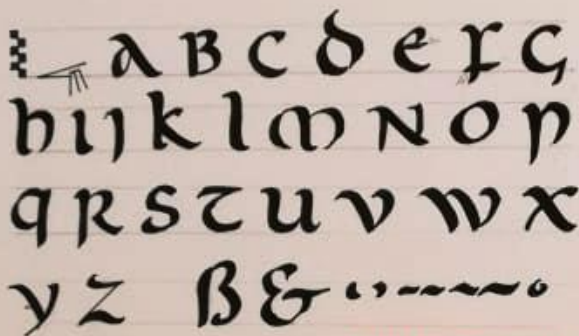 a B c d e f G
h i j k l m N o p
q R s t u v w x
y z ß &